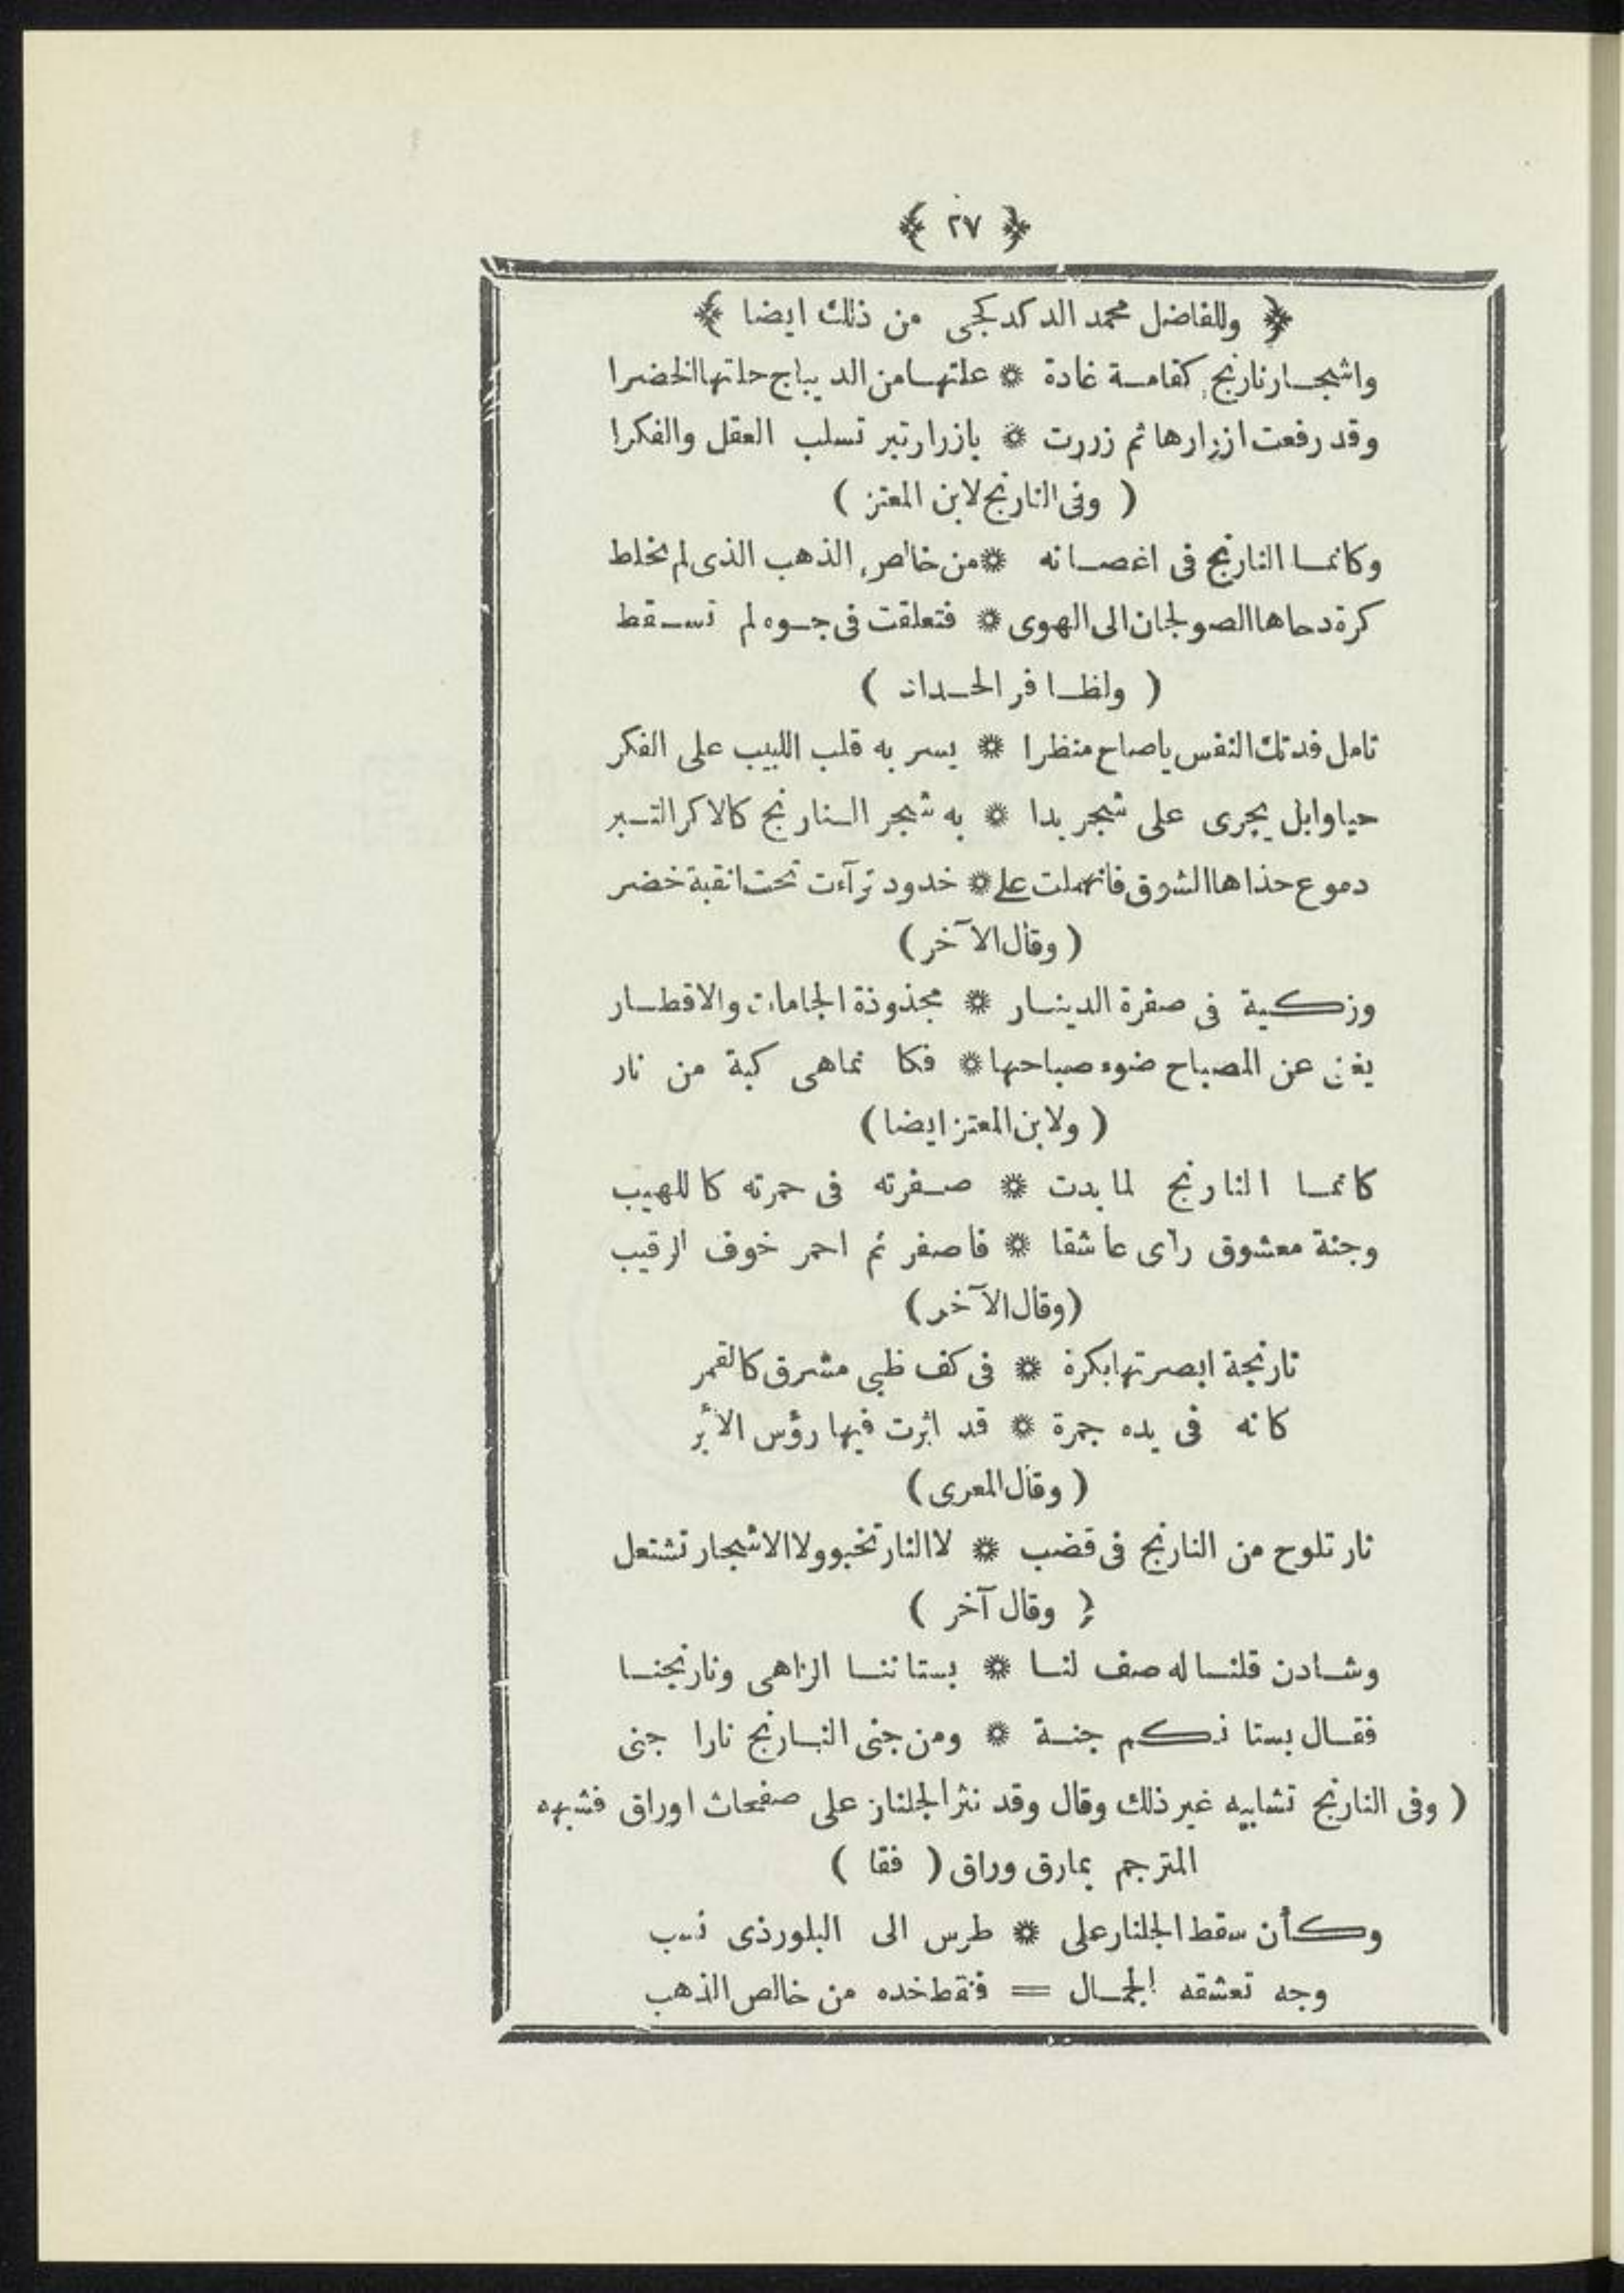 ﴿ ٢٧ ﴾
﴿ وللفاضل محمد الدكدكجى من ذلك ايضا ﴾
واشجار نارنج كقامة غادة * علتها من الديباج حلتها الخضرا
وقد رفعت ازرارها ثم زررت * بازرار تبر تسلب العقل والفكرا
( وفى النارنج لابن المعتز )
وكانما النارنج فى اغصانه * من خالص الذهب الذى لم يخلط
كرة دحاها الصولجان الى الهوى * فتعلقت فى جوه لم تسقط
( ولظافر الحداد )
تامل فدتك النفس ياصاح منظرا * يسر به قلب اللبيب على الفكر
حيا وابل يجرى على شجر بدا * به شجر النارنج كالاكر التبر
دموع حذاها الشوق فانهملت على * خدود ترآءت تحت انقبة خضر
( وقال الآخر )
وزكية فى صفرة الدينار * مجذوذة الجامات والاقطار
يغنى عن المصباح ضوء صباحها * فكانماهى كبة من نار
( ولابن المعتز ايضا )
كانما النارنج لما بدت * صفرته فى حمرته كاللهيب
وجنة معشوق رأى عاشقا * فاصفر ثم احمر خوف الرقيب
( وقال الآخر )
نارنجة ابصرتها بكرة * فى كف ظبى مشرق كالقمر
كانه فى يده جمرة * قد اثرت فيها رؤس الأبر
( وقال المعرى )
نار تلوح من النارنج فى قضب * لا النار تخبو ولا الاشجار تشتعل
( وقال آخر )
وشادن قلنا له صف لنا * بستاننا الزاهى ونارنجنا
فقال بستانكم جنة * ومن جنى النارنج نارا جنى
( وفى النارنج تشابيه غير ذلك وقال وقد نثر الجلنار على صفحات اوراق فشبهه
المترجم بمارق وراق ( فقا )
وكأن سقط الجلنار على * طرس الى البلور ذى نسب
وجه تعشقه الجمال = فنقط خده من خالص الذهب